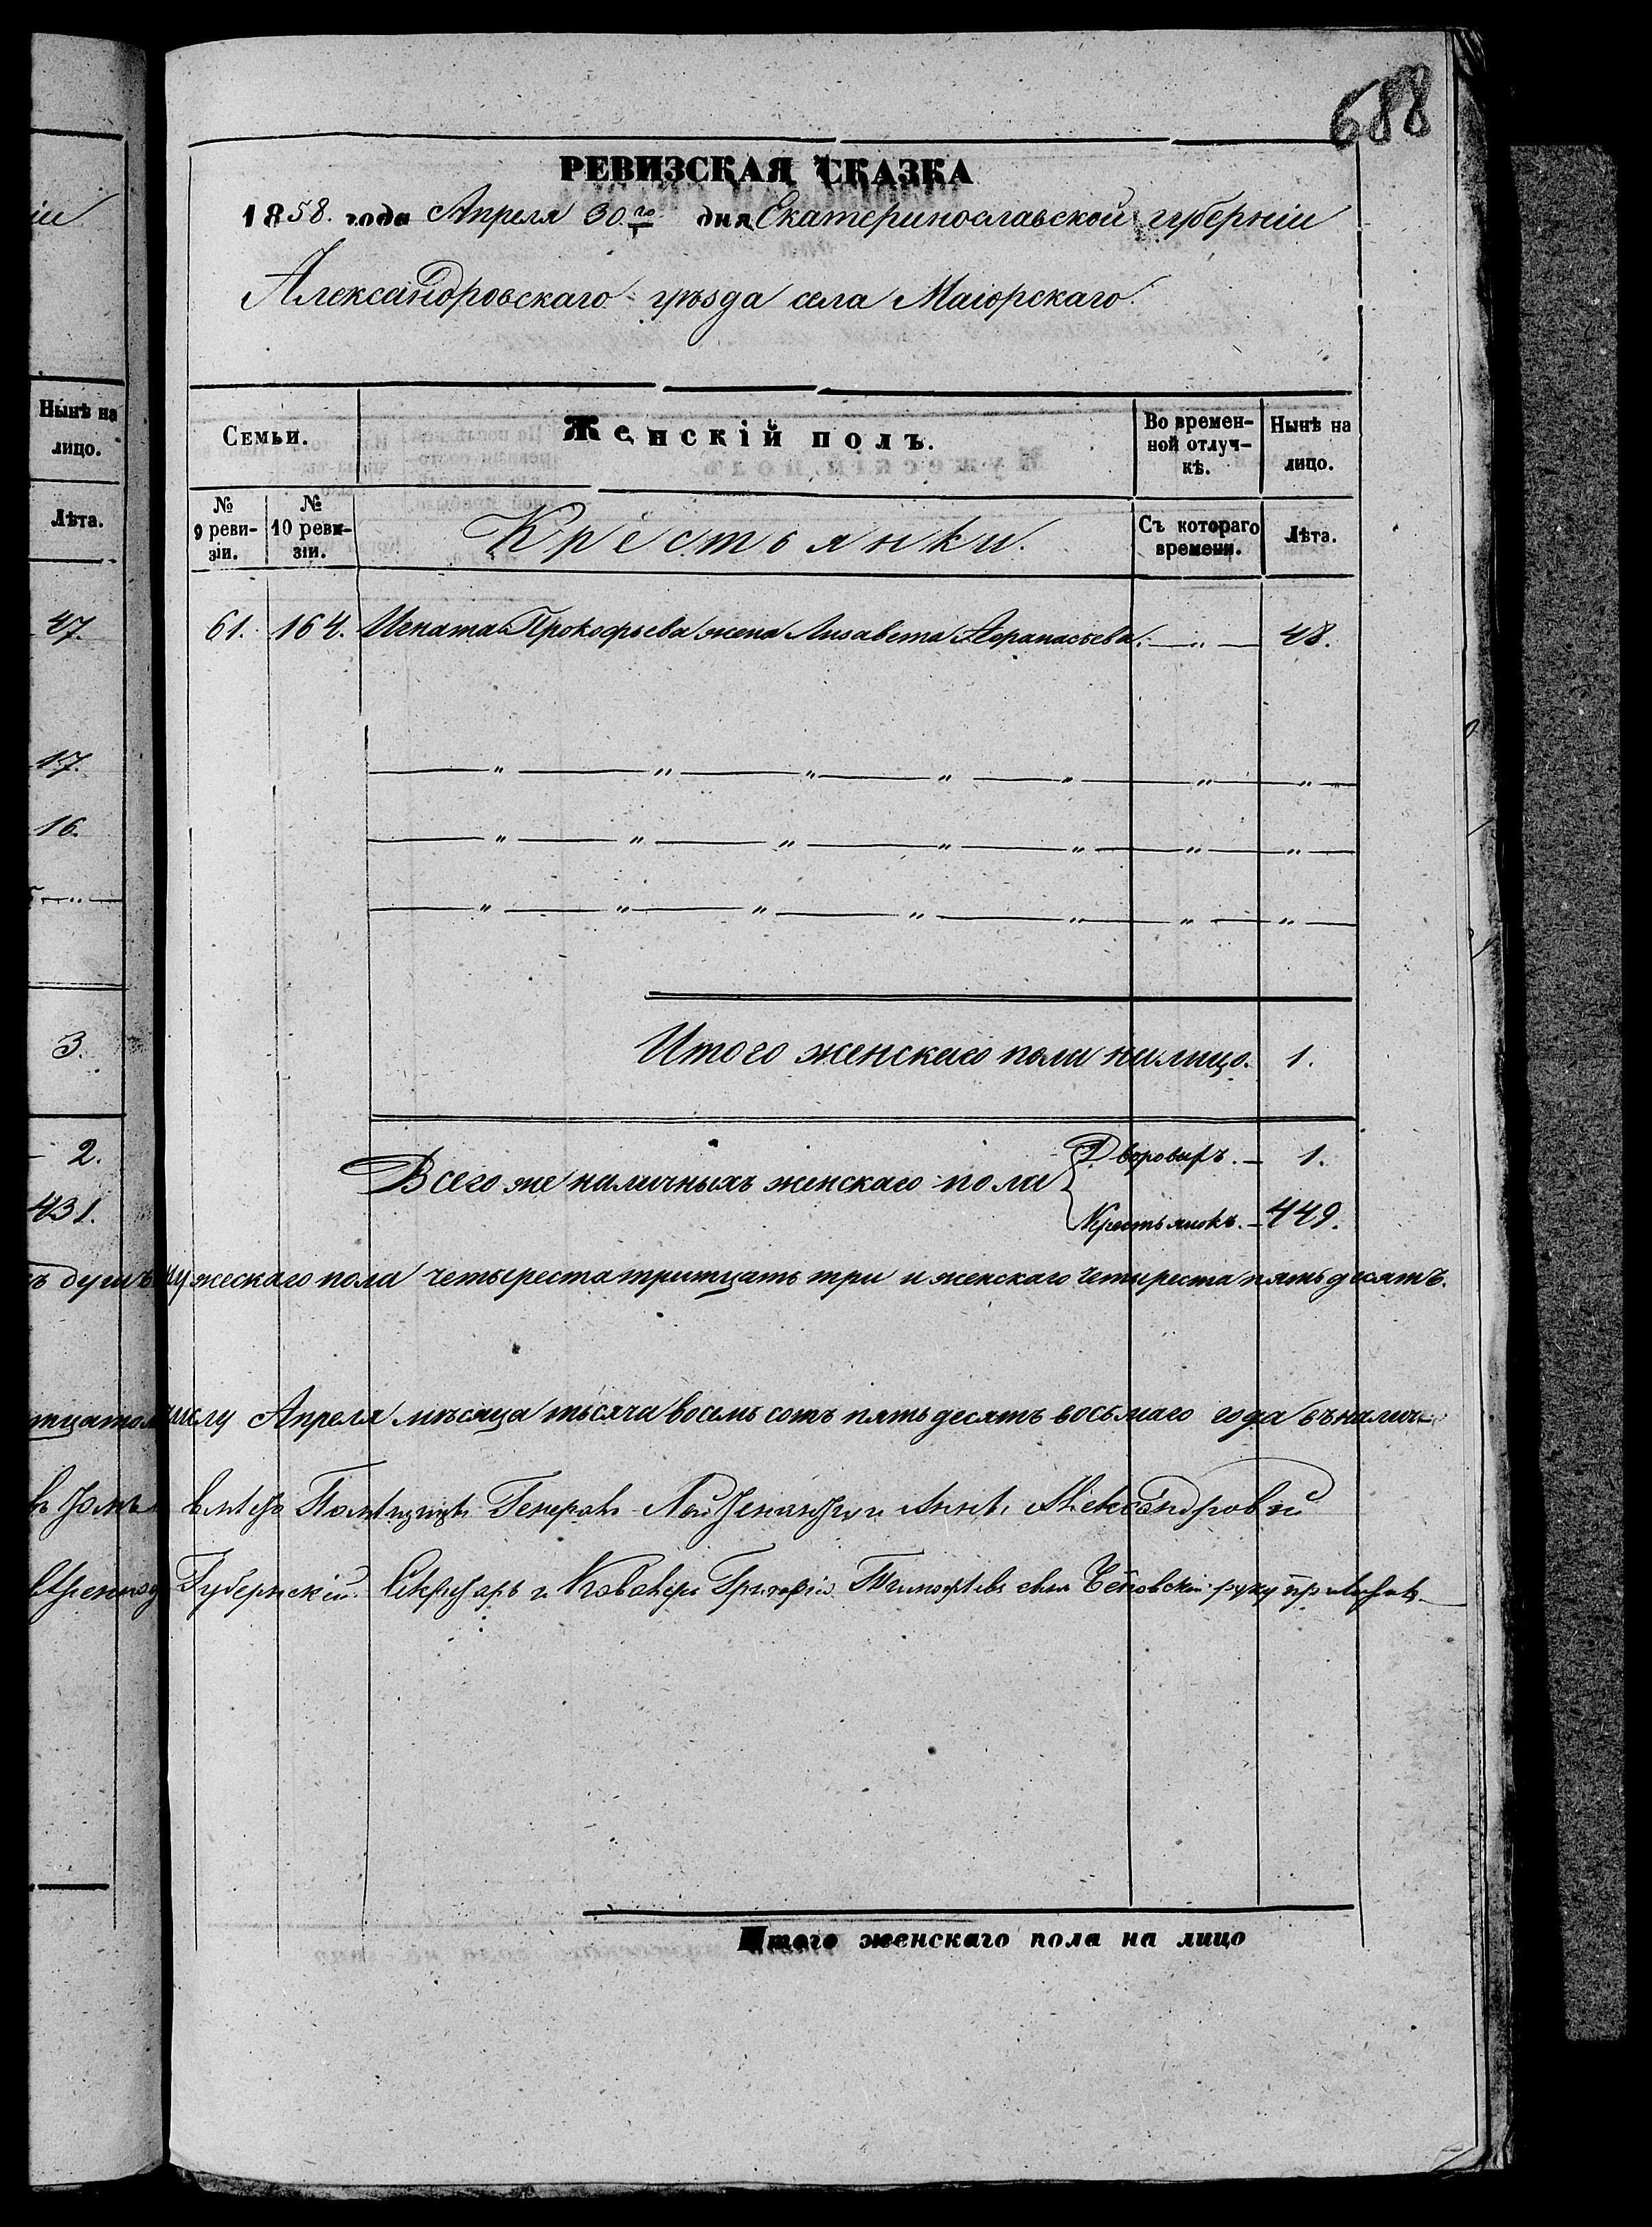 688
РЕВИЗСКАЯ СКАЗКА
1858. года Апреля 30.го дня Екатеринославской губерніи
Александровскаго уѣзда села Маіорскаго.
іи
Нынѣ на лицо.
Лѣта.
Семьи.
Женскій полъ.
Во времен-
ной отлуч-
кѣ.
Нынѣ на
лицо.
№
9 реви-
зіи.
№
10 реви-
зіи.
Крестьянки.
Съ котораго
времени.
Лѣта.
47.
61. 164. Игната Прокофьева жена Лизавета Аѳанасьева. — „ — 48.
17.
— „ — „ — „ — „ — „ — „ — „ —
16.
— „ — „ — „ — „ — „ — „ — „ —
— „ — „ — „ — „ — „ — „ — „ —
3.
Итого женскаго пола налицо. 1.
2.
Всего же наличныхъ женскаго пола
Дворовыхъ. — 1.
431.
Крестьянокъ. — 449.
ъ душъ мужескаго пола четыреста тритцать три и женскаго четыреста пятьдесятъ.
тцатому числу Апреля мѣсяца тысяча восемь сотъ пятьдесятъ восьмаго года въ налич-
вмѣсто Помѣщицы Генералъ Лейтенантши Анны Александровны
Губернскій Секретарь и Кавалеръ Григорій Тимофѣевъ сынъ руку приложилъ
Итого женскаго пола на лицо